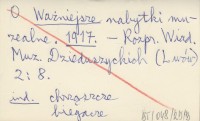 O Ważniejsze nabytki mu-
zealne. 1917. – Rozpr. Wiad.
Muz. Dzieduszyckich (Lwów)
2: 8.
ind. chrząszcze
biegacze